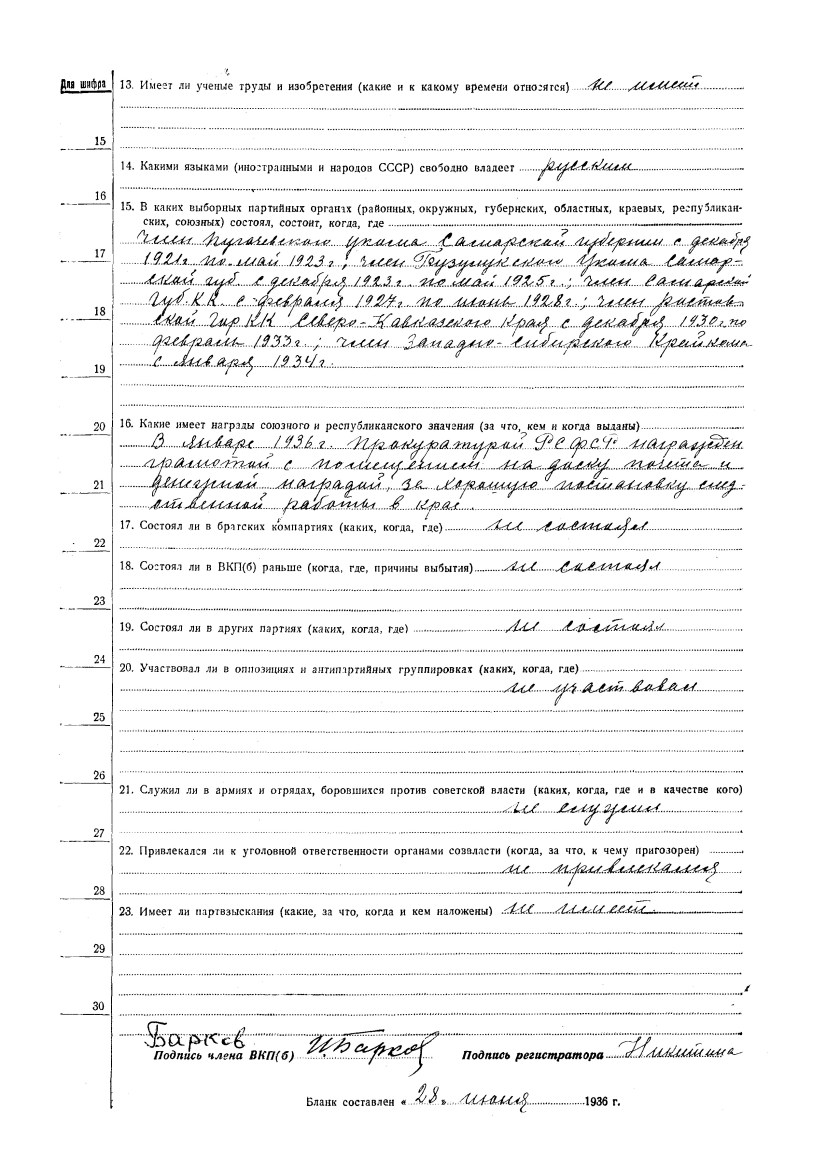 Для шифра
13. Имеет ли ученые труды и изобретения (какие и к какому времени относятся) не имеет
15
14. Какими языками (иностранными и народов СССР) свободно владеет русским
16
15. В каких выборных партийных органах (районных, окружных, губернских, областных, краевых, республикан-
ских, союзных) состоял, состоит, когда, где
Член Пугачевского укома Самарской губернии с декабря
17
1921г по май 1923г; член Бузулукского Укома Самар-
ской губ. с декабря 1923г. по май 1925г.; член Самарской
Губ.КК. с февраля 1927г по июнь 1928г; член ростов-
18
ской ГорКК Северо-Кавказского Края с декабря 1930г. по
февраль 1933г.; член Западно-Сибирского Крайкома
с января 1934г.
19
20
16. Какие имеет награды союзного и республиканского значения (за что, кем и когда выданы)
В январе 1936г. Прокуратурой РСФСР награжден
грамотой с помещением на доску почета и
21
денежной наградой, за хорошую постановку след-
ственной работы в крае.
17. Состоял ли в братских компартиях (каких, когда, где) не состоял
22
18. Состоял ли в ВКП(б) раньше (когда, где, причины выбытия) не состоял
23
19. Состоял ли в других партиях (каких, когда, где) не состоял
24
20. Участвовал ли в оппозициях и антипартийных группировках (каких, когда, где)
не участвовал
25
26
21. Служил ли в армиях и отрядах, боровшихся против советской власти (каких, когда, где и в качестве кого)
не служил
27
22. Привлекался ли к уголовной ответственности органами созвласти (когда, за что, к чему пригозорен)
не привлекался
28
23. Имеет ли партвзыскания (какие, за что, когда и кем наложены) не имеет.
29
30
Барков
Подпись члена ВКП(б) И.Барков Подпись регистратора Никитина
Бланк составлен «28» июня 1936 г.